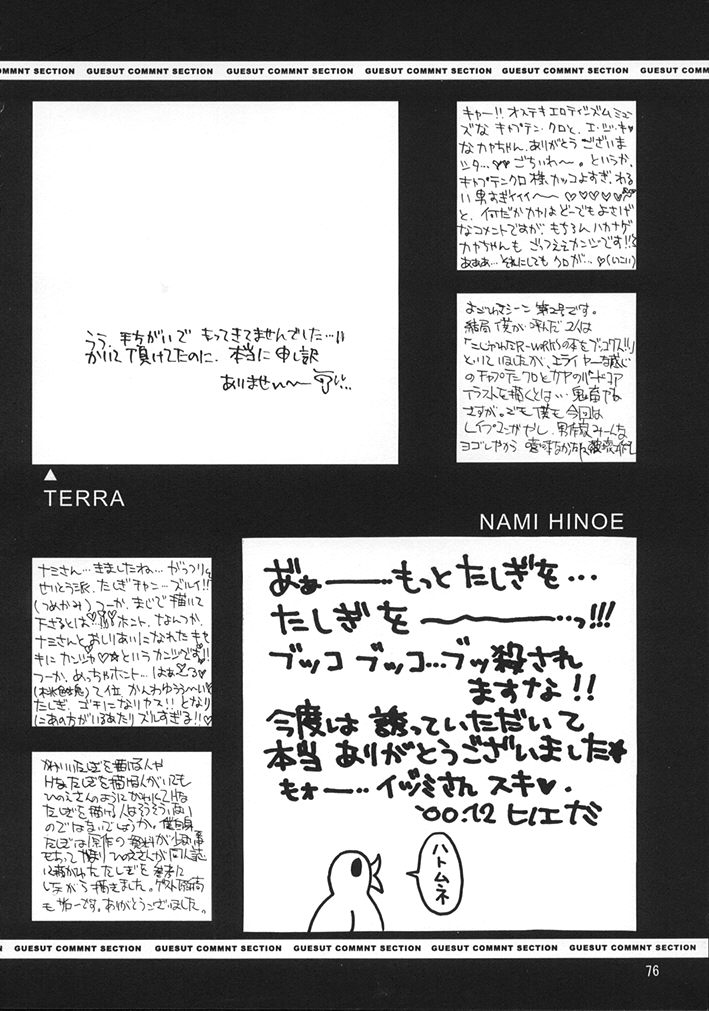 COMMNT SECTION GUESUT COMMNT SECTION GUESUT COMMNT SECTION GUESUT COMMNT SECTION GUESUT COMMNT SECTION GUESUT COMM
うう、手ちがいで もってきてませんでした…!!
かいて頂けてたのに、本当に申し訳
ありませぇん〜
TERRA
キャー!! オステキエロティシズムミュー
ズな キャプテン・クロと、エ・ジ・キ♥
なカヤちゃん、ありがとう ございま
シタ…♥♥ ごちいわ〜。というか、
キャプテンクロ様 カッコよすぎ、わる
い男すぎイイイ〜〜♡♡♡♡♡
と、何だかカヤはどーでもよさげ
なコメントですが、もちろんハカナゲ
カヤちゃんも ごっつええカンジです!!と
あああ… それにしても クロが…♡(いこい)
よごれてシーン 第2号です。
結局 僕が 呼んだ 2人は
といていましたが、エライヤーな感じ
のキャプテンクロとカヤのハードコア
イラストを描くとは… 鬼畜やね
さすが。でも 僕も 今回は
NAMI HINOE
ナミさん… きましたね… がっつり
せいとう派、たしぎチャン…ズルイ!!
(つめかみ) つーか、まじで描いて
下さるとは…!!! ホント、なんつか、
ナミさんと おしりあいになれた キセ
キに カンシャ♡☆というカンジです!!
つーか、めっちゃホント… はぁ
て位 かんわゆうう〜い
たしぎ、ゴチになりヤス!! となり
にあの方がいるあたり ズルすぎる!!♡
かわいいたしぎを描ける人や
Hなたしぎを描ける人がいても
ひのえさんのようにかわいくてHな
たしぎを描ける人はそうそういない
のではないでしょうか。僕自身
たしぎは原作の資料が
もってやはり ひのえさんが同人誌
に描かれたたしぎを参考に
しながら描きました。ゲスト原稿
も サイコーです。ありがとうございました。
あ゛ぁ───…もっと たしぎを…
たしぎを 〜〜〜…っ!!!
ブッコ ブッコ…ブッ殺され
ますな!!
今度は 誘っていただいて
本当 ありがとうございました★
もォー… イヅミさん スキ♥.
'00.12 ヒノエナミ
ハトムネ
N GUESUT COMMNT SECTION GUESUT COMMNT SECTION GUESUT COMMNT SECTION GUESUT COMMNT SECTION GUESUT COMMNT SECTION
76